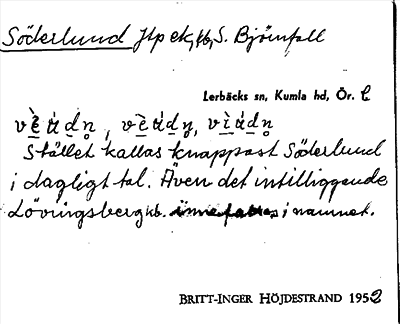 Söderlund Jtp ek, kb, S. Björnfall
Lerbäcks sn, Kumla hd, Ör. l.
Stället kallas knappast Söderlund
i dagligt tal. Även det intilliggande
Lövingsberg innefattas i namnet.
BRITT-INGER HÖJDESTRAND 1952